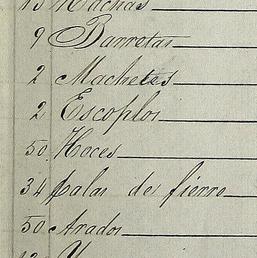 13 Hachas
9 Barretas
2 Machetes
2 Escoplos
50 Hoces
34 palas de fierro
50 Arados